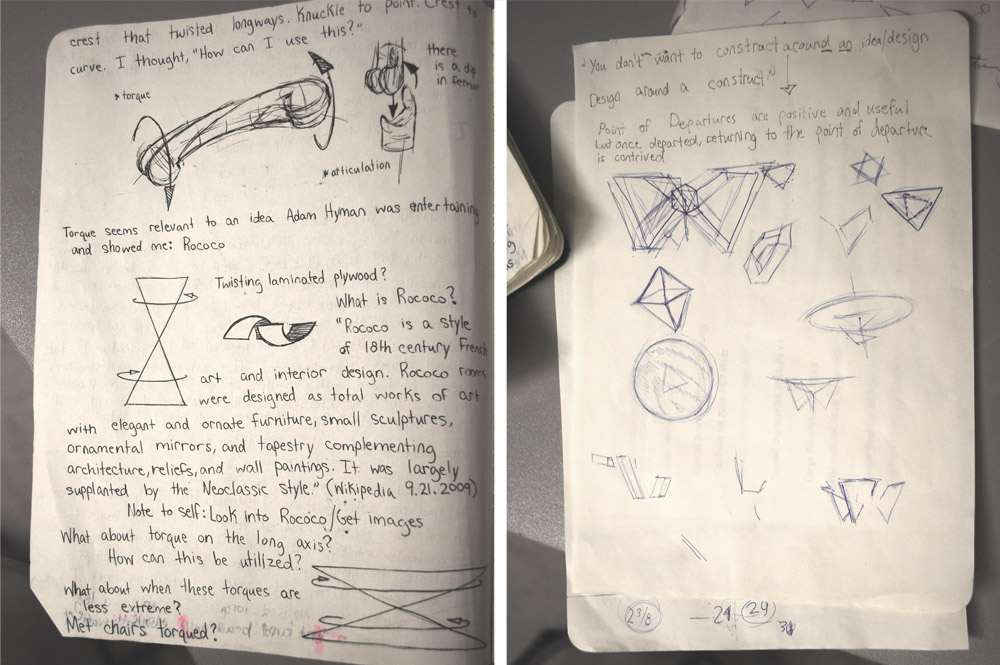 crest that twisted longways. Knuckle to point. Crest to
curve. I thought, "How can I use this?"
there
is a dip
in femur
* torque
* articulation
Torque seems relevant to an idea Adam Hyman was entertaining
and showed me: Rococo
Twisting laminated plywood?
What is Rococo?
"Rococo is a style
of 18th century French
art and interior design. Rococo rooms
were designed as total works of art
with elegant and ornate furniture, small sculptures,
ornamental mirrors, and tapestry complementing
architecture, reliefs, and wall paintings. It was largely
supplanted by the Neoclassic style." (Wikipedia 9.21.2009)
Note to self: Look into Rococo/Get images
What about torque on the long axis?
How can this be utilized?
What about when these torques are
less extreme?
Met chairs torqued?
"You don't want to construct around an idea/design
Design around a construct"
Point of Departures are positive and useful
but once departed, returning to the point of departure
is contrived
2 3/8 — 24 29